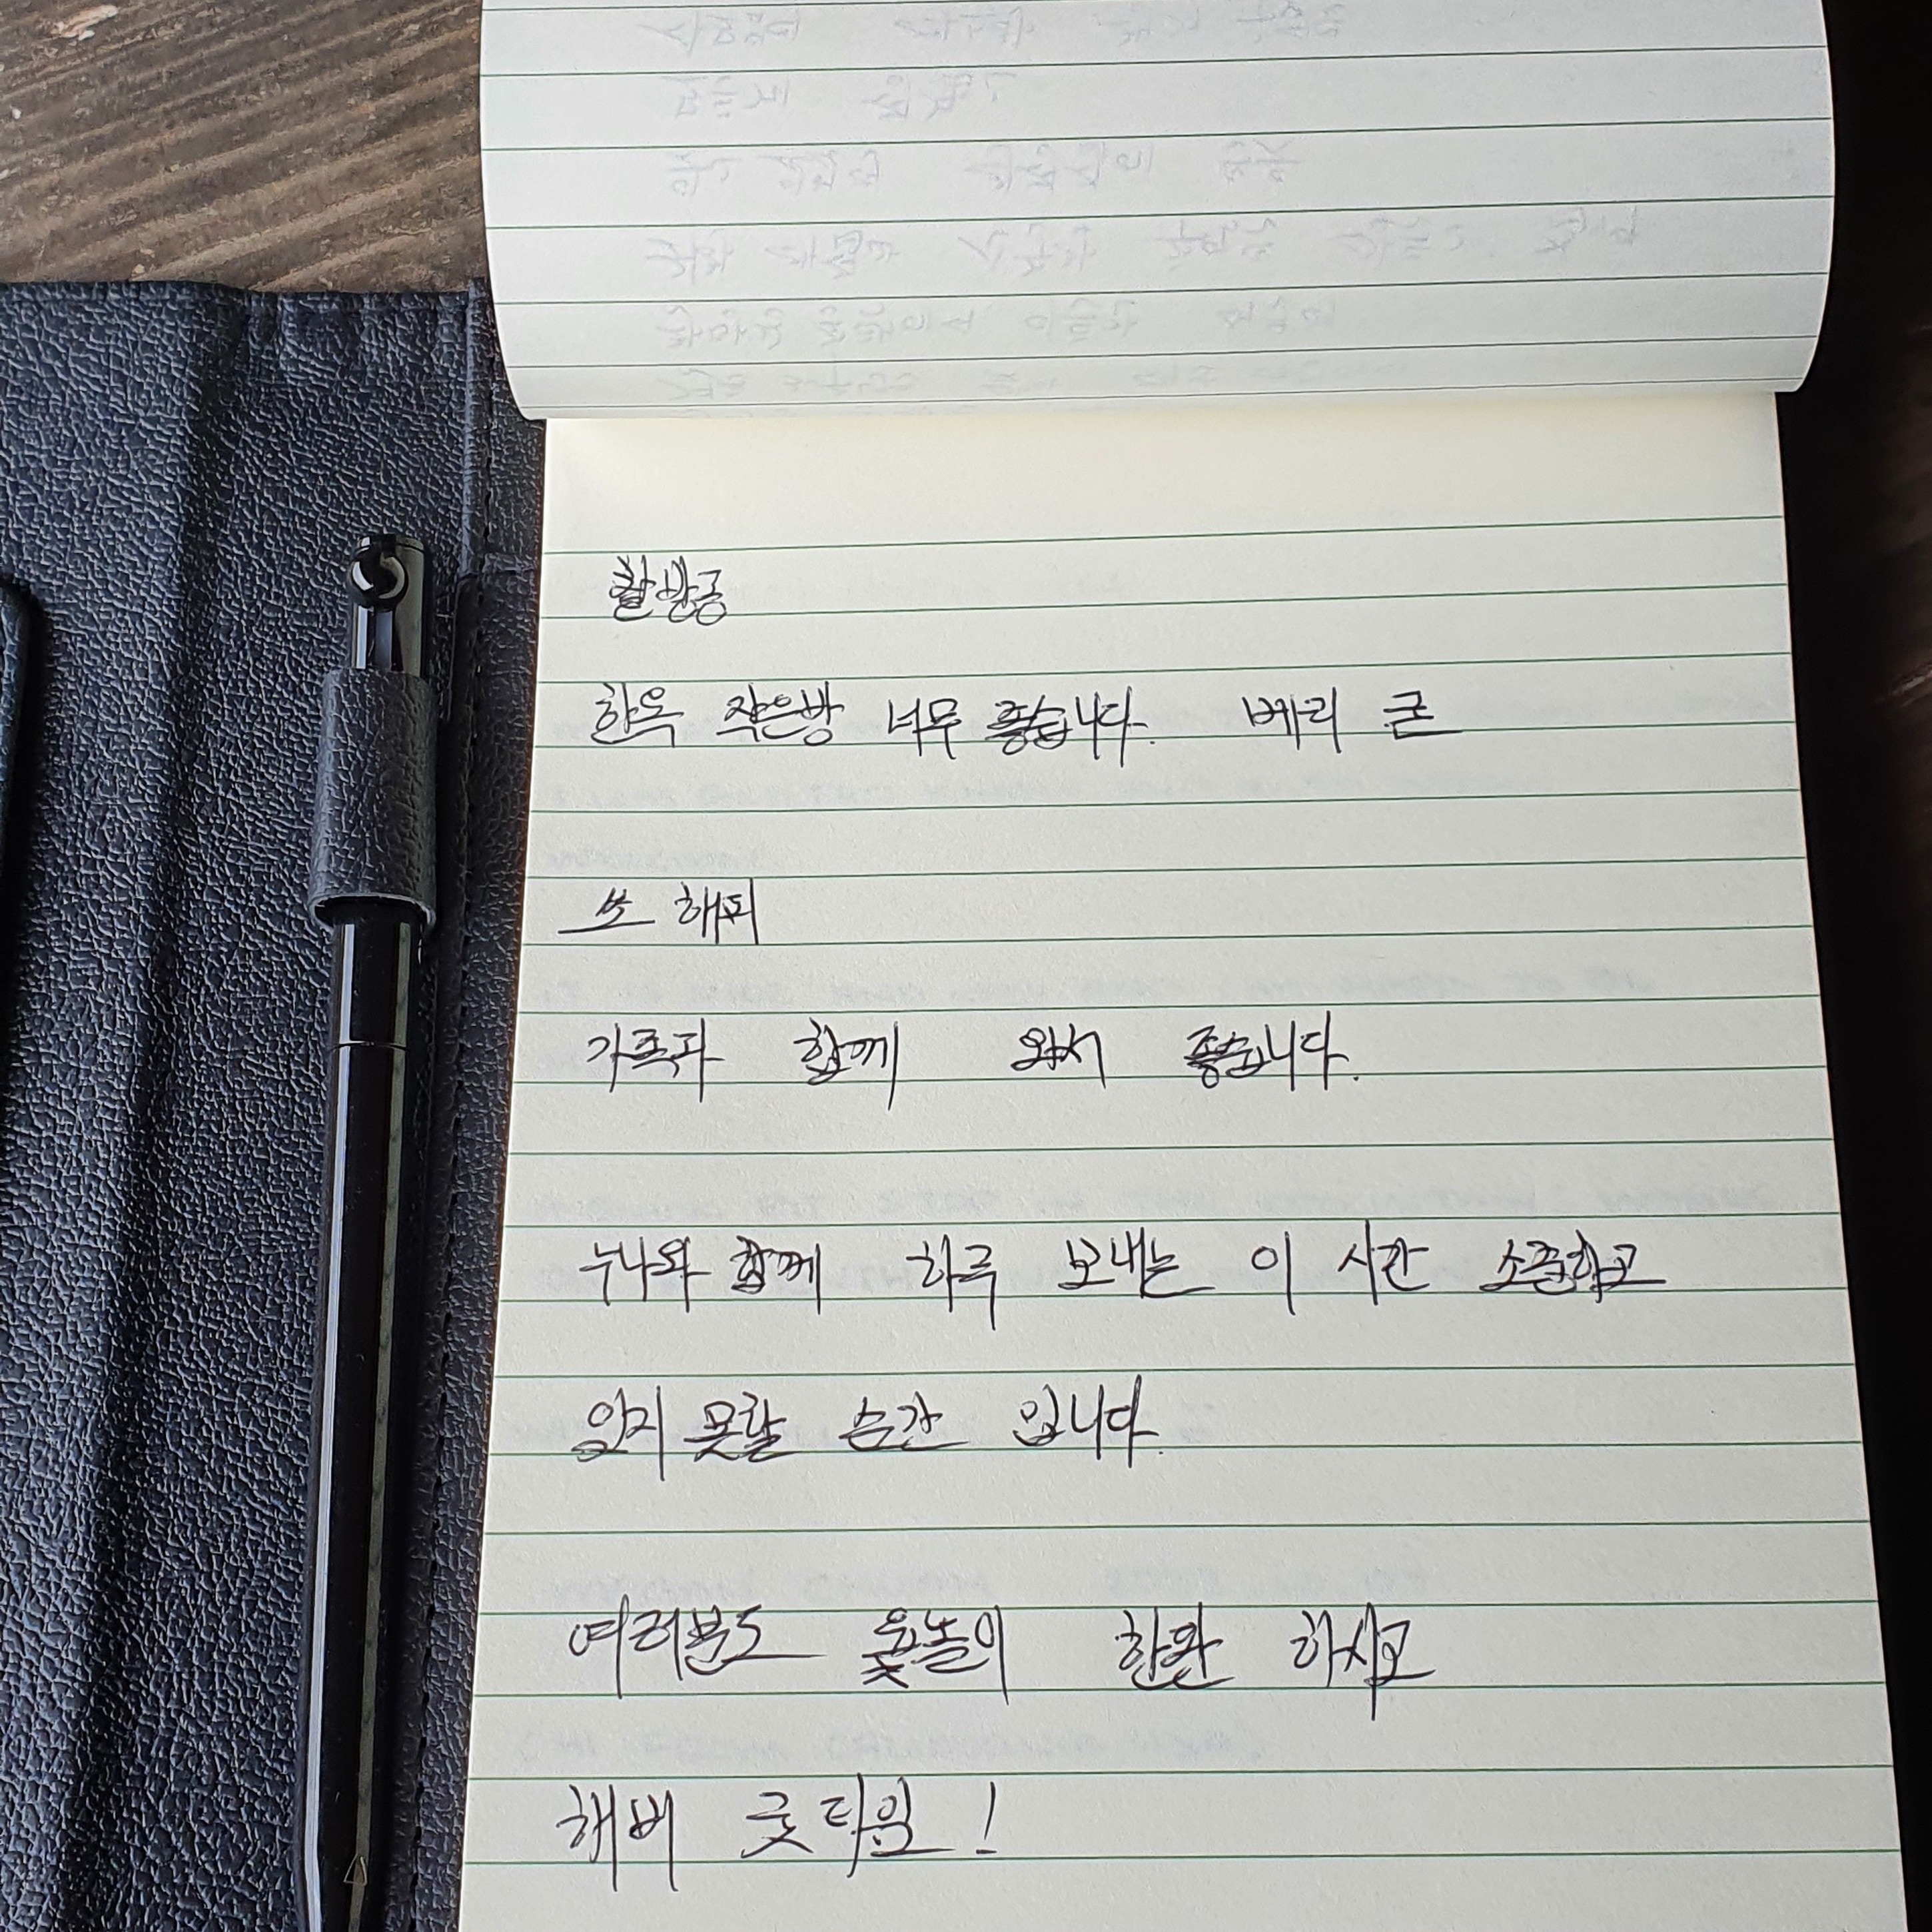 한옥 작은방 너무 좋습니다. 베리 굳
쏘 해피
가족과 함께 와서 좋습니다.
누나와 함께 하루 보내는 이 시간 소중하고
잊지 못할 순간 입니다.
여러분도 윷놀이 한판 하시고
해버 굿타임!